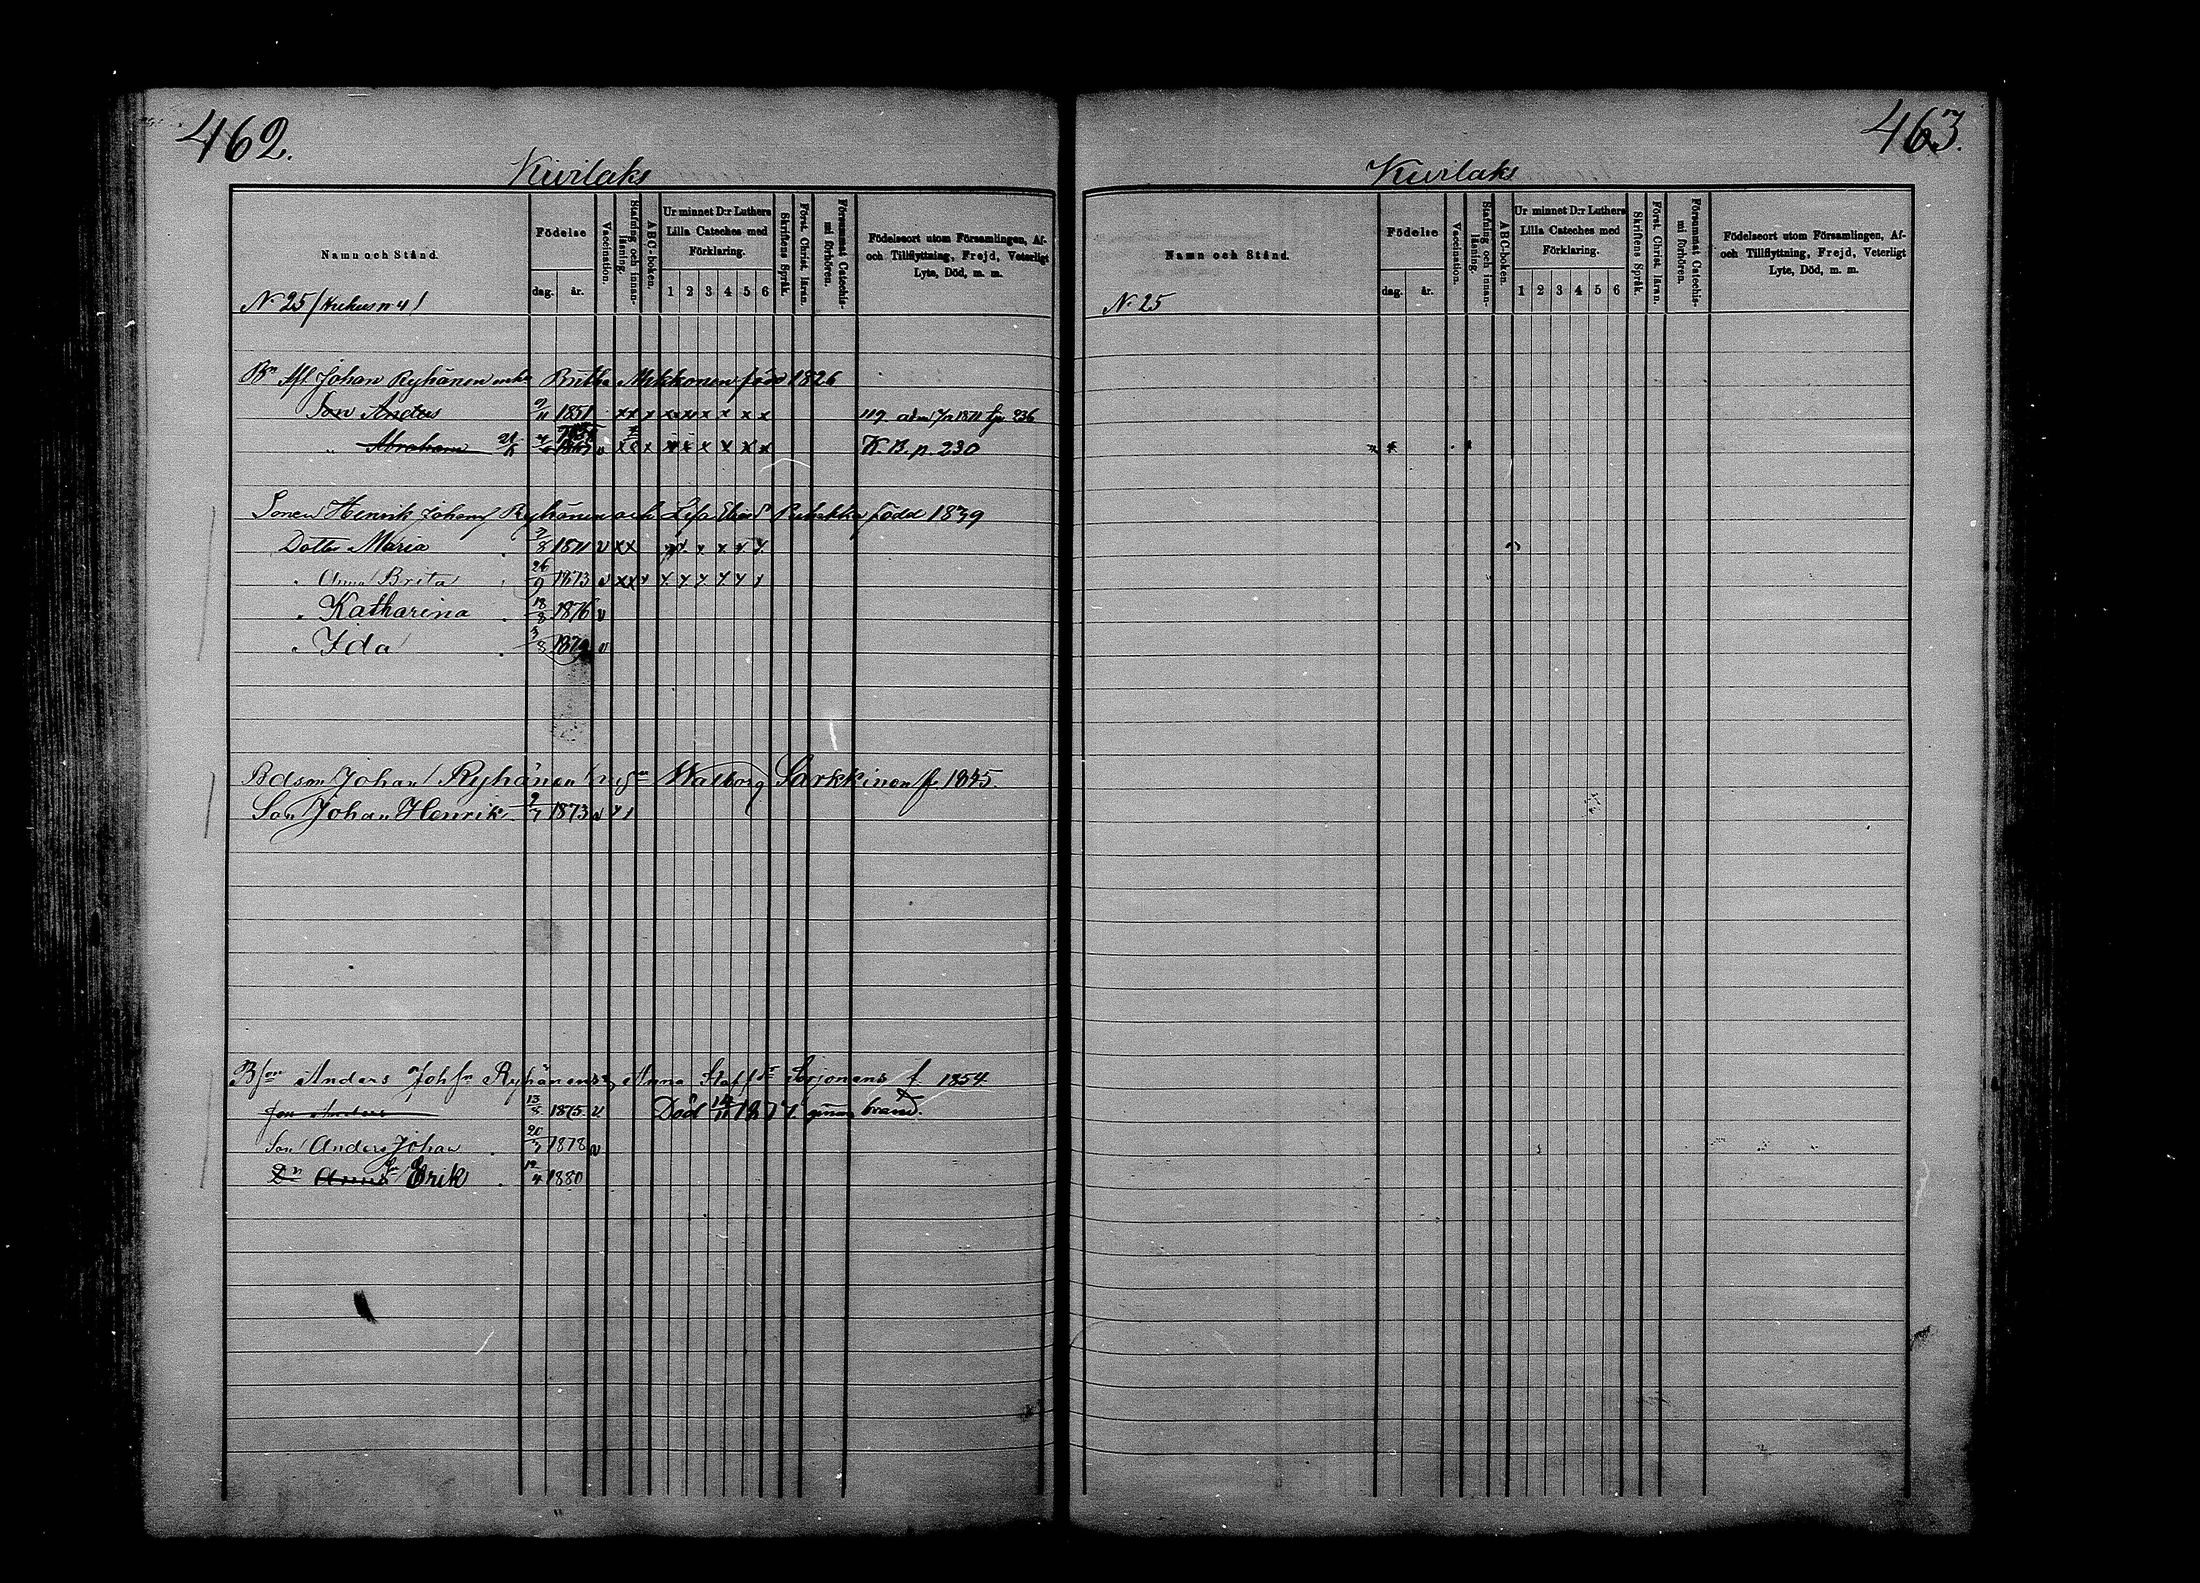 462.
Kivilaks
Namn och Stånd.
Födelse
dag. år.
Vaccination.
Stafning och innan-läsning.
ABC-boken.
Ur minnet D:r Luthers Lilla Cateches med Förklaring.
1 2 3 4 5 6
Skriftens Språk.
Först. Christ. läran.
Försummat Catechis-mi förhören.
Födelseort utom Församlingen, Af- och Tillflyttning, Frejd, Veterligt Lyte, Död, m. m.
N. 25
Bn Afl Johan Ryhänen enka Britha Mikkonen född 1826
Son Anders 9/11 1851 x x x x x x x x x 119 adm 1871 236
" Abraham v x x x x x x x x x K. B. p. 230
Sonen Henrik Johans Ryhänen och Lisa född 1839
Dotter Maria 7/8 1871 v x x x x x x x x
" Anna Brita 26/9 1873 v x x x x x x x x x
" Katharina 18/8 1876 v
" Ida 5/8 1879 v
Johan Ryhänen Walborg Sarkkinen f. 1845.
Son Johan Henrik 9/7 1873 v x x
Bson Anders Johsn Ryhänens Anna Staffsdr Sorjonens f. 1854
Son Anders 13/8 1875 v Död 1877. brand.
Son Anders Johan 20/7 1878 v
Dr Anna Sn Erik 12/4 1880
463.
Kivilaks
Namn och Stånd.
Födelse
dag. år.
Vaccination.
Stafning och innan-läsning.
ABC-boken.
Ur minnet D:r Luthers Lilla Cateches med Förklaring.
1 2 3 4 5 6
Skriftens Språk.
Först. Christ. läran.
Försummat Catechis-mi förhören.
Födelseort utom Församlingen, Af- och Tillflyttning, Frejd, Veterligt Lyte, Död, m. m.
N. 25